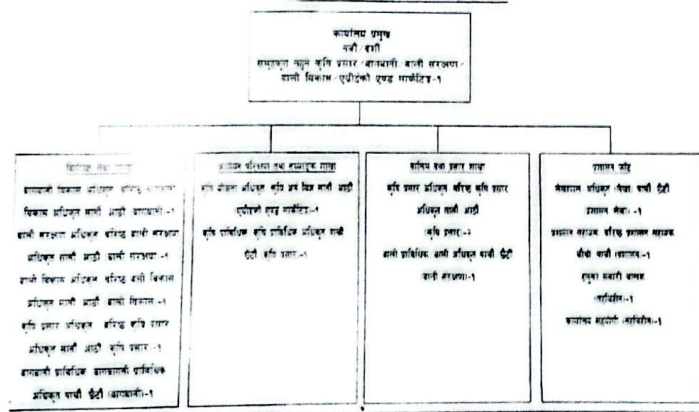 कार्यालय प्रमुख
नवौ/दशौ
समूहकृत नहुने कृषि प्रसार/बागवानी/बाली संरक्षण/
बाली विकास/एग्रीइको एण्ड मार्केटिङ-१
बागवानी विकास अधिकृत वरिष्ठ बागवानी
विकास अधिकृत सातौं आठौं (बागवानी)-१
बाली संरक्षण अधिकृत वरिष्ठ बाली संरक्षण
अधिकृत सातौं आठौं बाली संरक्षण-१
बाली विकास अधिकृत वरिष्ठ बाली विकास
अधिकृत सातौं आठौं बाली विकास-१
कृषि प्रसार अधिकृत वरिष्ठ कृषि प्रसार
अधिकृत सातौं आठौं कृषि प्रसार-१
बागवानी प्राविधिक बागवानी प्राविधिक
अधिकृत पाचौं छैटौं (बागवानी)-१
तथा शाखा
कृषि योजना अधिकृत कृषि अर्थ विज्ञ सातौं आठौं
(एग्रीइको एण्ड मार्केटिङ)-१
कृषि प्राविधिक कृषि प्राविधिक अधिकृत पाचौं
छैटौं (कृषि प्रसार)-१
तालिम तथा प्रसार शाखा
कृषि प्रसार अधिकृत वरिष्ठ कृषि प्रसार
अधिकृत सातौं आठौं
(कृषि प्रसार)-१
बाली प्राविधिक बाली अधिकृत पाचौं छैटौं
(बाली संरक्षण)-१
प्रशासन फाँट
लेखापाल अधिकृत (लेखा) पाचौं छैटौं
प्रशासन लेखा)-१
प्रशासन सहायक वरिष्ठ प्रशासन सहायक
चौथो पाचौं (प्रशासन)-१
हलुका सवारी चालक
(तहविहीन)-१
कार्यालय सहयोगी (तहविहीन)-१